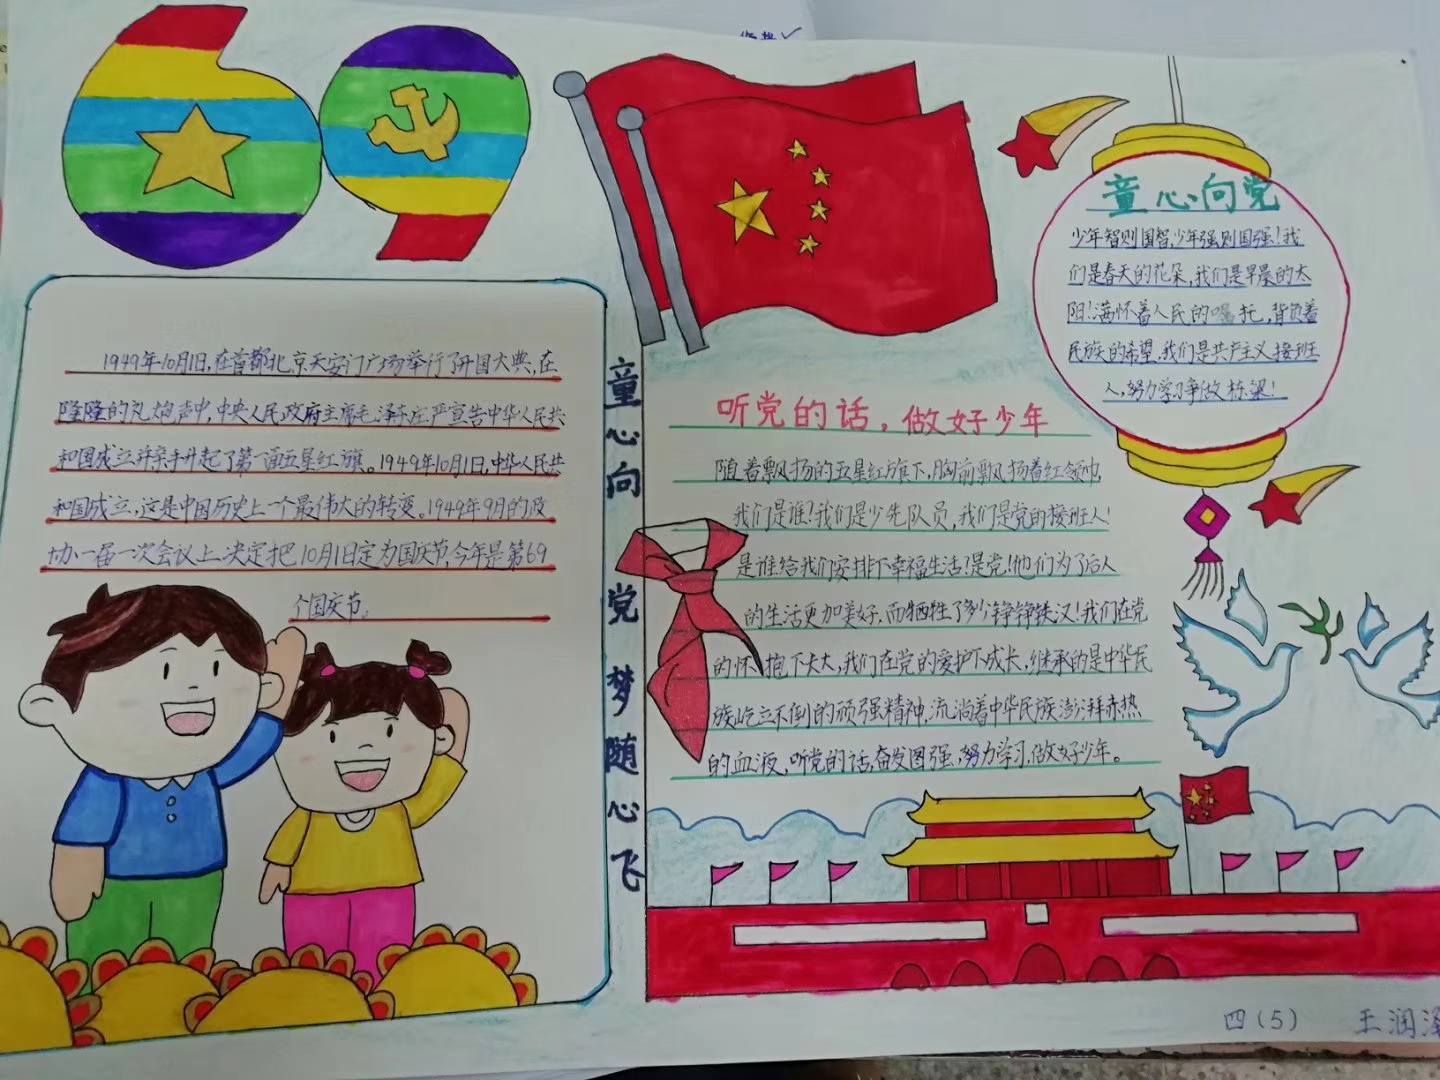 69
童心向党
少年智则国智,少年强则国强!我
们是春天的花朵,我们是早晨的太
阳!满怀着人民的嘱托,背负着
民族的希望,我们是共产主义接班
人,努力学习争做栋梁!
1949年10月1日,在首都北京天安门广场举行了开国大典,在
隆隆的礼炮声中,中央人民政府主席毛泽东庄严宣告中华人民共
和国成立并亲手升起了第一面五星红旗。1949年10月1日,中华人民共
和国成立,这是中国历史上一个最伟大的转变。1949年9月的政
协一届一次会议上决定把10月1日定为国庆节,今年是第69
个国庆节。
童心向党 梦随心飞
听党的话,做好少年
随着飘扬的五星红旗下,胸前飘扬着红领巾,
我们是谁!我们是少先队员,我们是党的接班人!
是谁给我们安排下幸福生活?是党!他们为了后人
的生活更加美好,而牺牲了多少铮铮铁汉!我们在党
的怀抱下长大,我们在党的爱护下成长,继承的是中华民
族屹立不倒的顽强精神,流淌着中华民族澎湃赤热
的血液,听党的话,奋发图强,努力学习,做好少年。
四(5) 王润泽